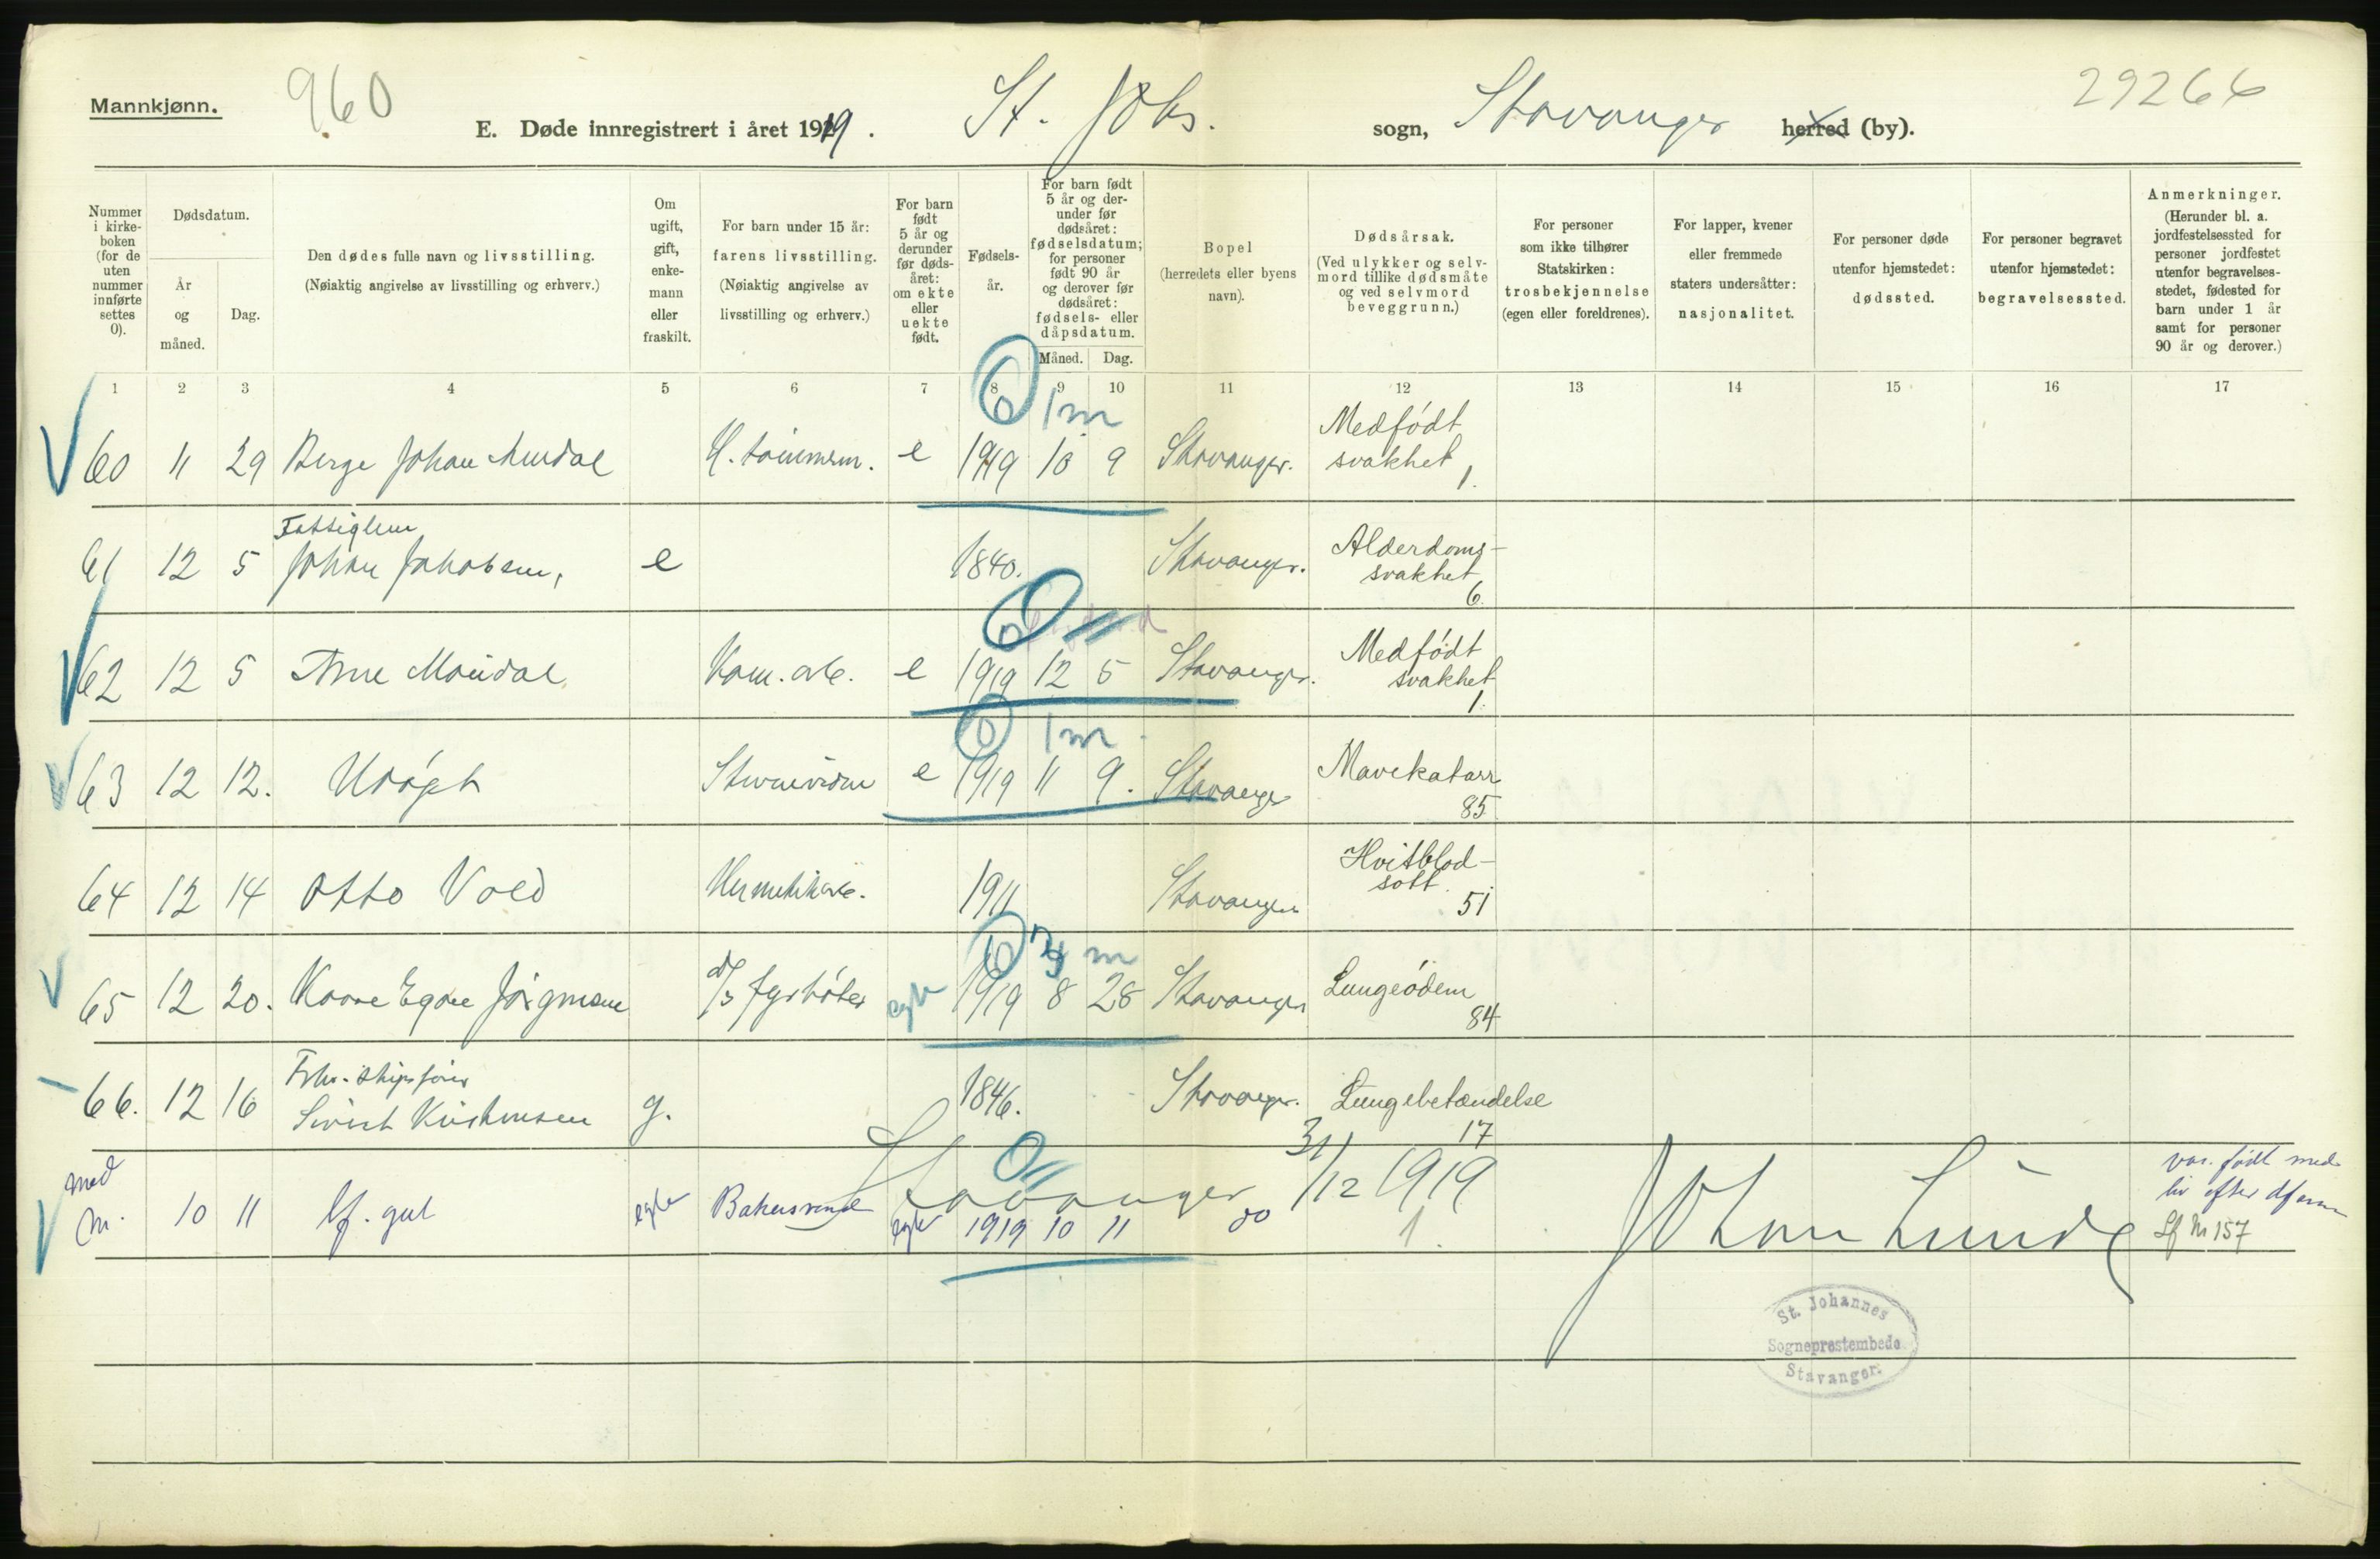 Mannkjønn.
960
E. Døde innregistrert i året 1919.
St. Johs.
sogn,
Stavanger
herred (by).
29266
Nummer i kirkeboken (for de uten nummer innførte settes 0).
Dødsdatum.
År og måned.
Dag.
Den dødes fulle navn og livsstilling.
(Nøiaktig angivelse av livsstilling og erhverv.)
Om ugift, gift, enkemann eller fraskilt.
For barn under 15 år: farens livsstilling.
(Nøiaktig angivelse av livsstilling og erhverv.)
For barn født 5 år og derunder før dødsåret: om ekte eller uekte født.
Fødselsår.
For barn født 5 år og derunder før dødsåret: fødselsdatum; for personer født 90 år og derover før dødsåret: fødsels- eller dåpsdatum.
Måned. Dag.
Bopel
(herredets eller byens navn).
Dødsårsak.
(Ved ulykker og selvmord tillike dødsmåte og ved selvmord beveggrunn.)
For personer som ikke tilhører Statskirken: trosbekjennelse (egen eller foreldrenes).
For lapper, kvener eller fremmede staters undersåtter: nasjonalitet.
For personer døde utenfor hjemstedet: dødssted.
For personer begravet utenfor hjemstedet: begravelsessted.
Anmerkninger.
(Herunder bl. a. jordfestelsessted for personer jordfestet utenfor begravelsesstedet, fødested for barn under 1 år samt for personer 90 år og derover.)
1 2 3 4 5 6 7 8 9 10 11 12 13 14 15 16 17
0 1 m
60 11 29 Berge Johan e 1919 10 9 Stavanger. Medfødt svakhet 1.
61 12 5 Fattiglem Johan Jakobsen, e 1840. Stavanger. Alderdoms-svakhet 6.
0
62 12 5 Arne e 1919 12 5 Stavanger. Medfødt svakhet 1.
0 1 m
63 12 12. Udøpt e 1919 11 9. Stavanger Mavekatarr 85
64 12 14 Otto Vold 1911 Stavanger Hvitblod-sott. 51
0 3 m
65 12 20. Kaare Egon Jørgensen d/s fyrbøter egte 1919 8 28 Stavanger Lungeödem 84
66. 12 16 Fhv. skipsfører Sivert Kristensen g. 1846. Stavanger. Lungebetændelse 17
Stavanger 31/12 1919
Johan Lunde
med m. 10 11 lf. gut egte Bakersvend egte 1919 10 11 do 1.
var født med liv efter dfem
Lf N 157
St. Johannes
Sogneprestembede
Stavanger.